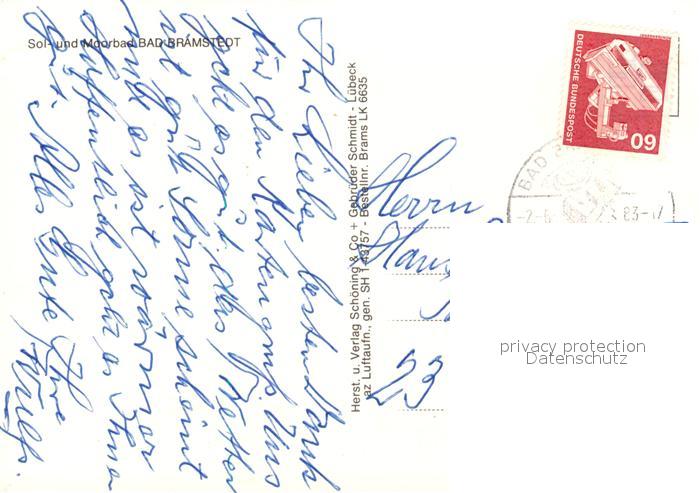 Sol- und Moorbad BAD BRAMSTEDT
Ihr Lieben, besten Dank
für den Kartengruß. Uns
geht es gut, das Wetter
ist gut, Sonne scheint
und es ist wärmer
Hoffentlich geht es Ihnen
gut. Alles Gute Ihre
Wulfs.
Herst. u. Verlag Schöning & Co + Gebrüder Schmidt - Lübeck
az Luftaufn., gen. SH 1-43757 - Bestellnr. Brams LK 6635
DEUTSCHE BUNDESPOST
60
BAD
83-17
Herrn
Hans
23
privacy protection
Datenschutz